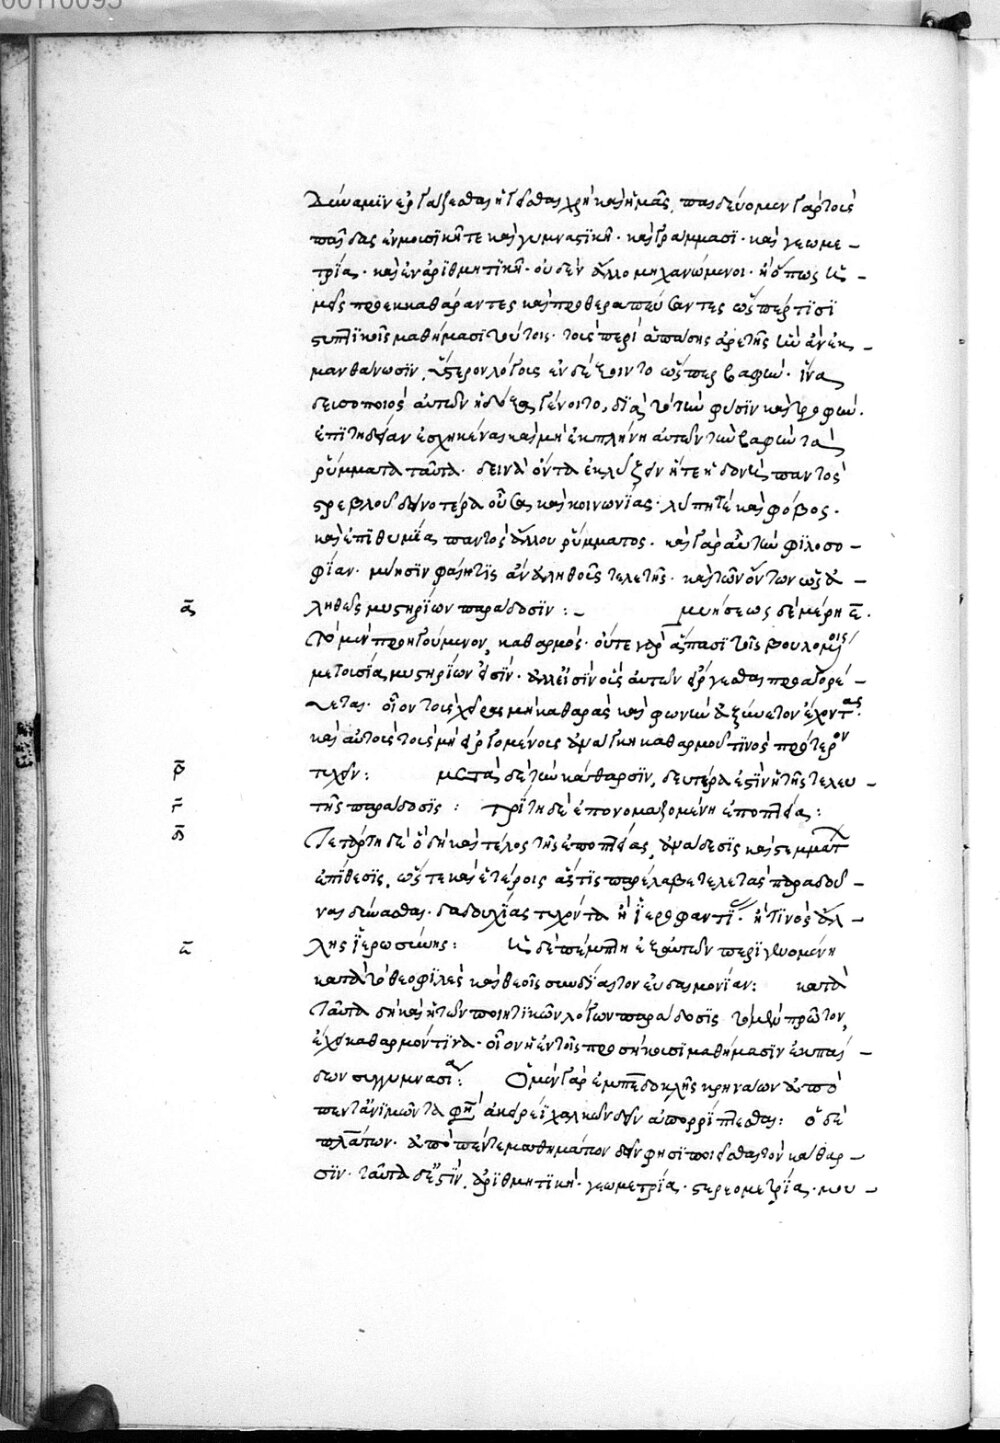 00110095
δύναμιν ἐργάζεσθαι ἡγεῖσθαι χρὴ καὶ ἡμᾶς, παιδεύομεν γὰρ τοὺς
παῖδας ἐν μουσικῆ τε καὶ γυμναστικῆ· καὶ γράμμασι· καὶ γεωμε-
τρίας· καὶ ἐν ἀριθμητικῆ· οὐδὲν ἄλλο μηχανώμενοι· ἢ ὅπως
προεκκαθάραντες καὶ προθεραπεύσαντες ὥσπερ τισὶ
στυπτικοῖς μαθήμασι τούτοις· τοὺς περὶ ἁπάσης ἀρετῆς ἐκ-
μανθάνωσιν, ὕστερον λόγους ἐνδέξοιντο ὥσπερ βαφὴν· ἵνα
δευσοποιὸς αὐτῶν ἡ δόξα γένοιτο, διὰ τὸ τὴν φύσιν καὶ τροφὴν.
ἐπιτηδείαν ἐσχηκέναι καὶ μὴ ἐκπλύνῃ αὐτῶν τὴν βαφὴν τὰ
ῥύμματα ταῦτα· δεινὰ ὄντα ἐκλύζειν ἥ τε ἡδονὴ παντὸς
στρεβλοῦ δεινοτέρα οὖσα καὶ κοινωνίας· λύπη τε καὶ φόβος·
καὶ ἐπιθυμία παντὸς ἄλλου ῥύμματος· καὶ γὰρ αὖ τὴν φιλοσο-
φίαν· μύησιν φαίη τις ἂν ἀληθοῦς τελετῆς· καὶ τῶν ὄντων ὡς ἀ-
α ληθῶς μυστηρίων παράδοσιν : μυήσεως δὲ μέρη ε.
τὸ μὲν προηγούμενον, καθαρμός· οὔτε γὰρ ἅπασι τοῖς βουλομένοις
μετουσία μυστηρίων ἐστίν· ἀλλ' εἰσὶν οὓς αὐτῶν εἴργεσθαι προαγορεύ-
εται· οἷον τοὺς χεῖρας μὴ καθαρὰς καὶ φωνὴν ἀξύνετον ἔχοντας·
καὶ αὐτοὺς τοὺς μὴ εἰργομένους ἀνάγκη καθαρμοῦ τινὸς πρότερον
β τυχεῖν: μετὰ δὲ τὴν κάθαρσιν, δευτέρα ἐστὶν ἡ τῆς τελευ
γ τῆς παράδοσις : τρίτη δὲ ἐπονομαζομένη ἐποπτεία:
δ Τετάρτη δὲ ὃ δὴ καὶ τέλος τῆς ἐποπτείας, ἀνάδεσις καὶ στεμμάτ
ἐπίθεσις, ὥστε καὶ ἑτέροις ἅς τις παρέλαβε τελετὰς παραδοῦ-
ναι δύνασθαι· δαδουχίας τυχόντα ἢ ἱεροφαντι· ἤ τινος ἄλ-
ε λης ἱερωσύνης: ἡ δὲ πέμπτη ἡ ἐξ αὐτῶν περιγενομένη
κατὰ τὸ θεοφιλὲς καὶ θεοῖς συνδίαιτον εὐδαιμονίαν: κατὰ
ταῦτα δὴ καὶ ἡ τῶν ποιητικῶν λόγων παράδοσις τὸ μὲν πρῶτον,
ἔχει καθαρμόν τινα· οἷον ἡ ἐν τοῖς προσήκουσι μαθήμασιν ἐκ παί-
δων συγγυμνασία: Ὁ μὲν γὰρ ἐμπεδοκλῆς κρηνάων ἀπὸ
πέντ' ἀνιμῶντα φησὶ ἀτειρέϊ χαλκῶ δεῖν ἀπορρίπτεσθαι: ὁ δὲ
πλάτων· ἀπὸ πέντε μαθημάτων δεῖν φησι ποιεῖσθαι τὸν κάθαρ-
σιν· ταῦτα δ' ἐστίν, ἀριθμητική· γεωμετρία· στερεομετρία· μου-